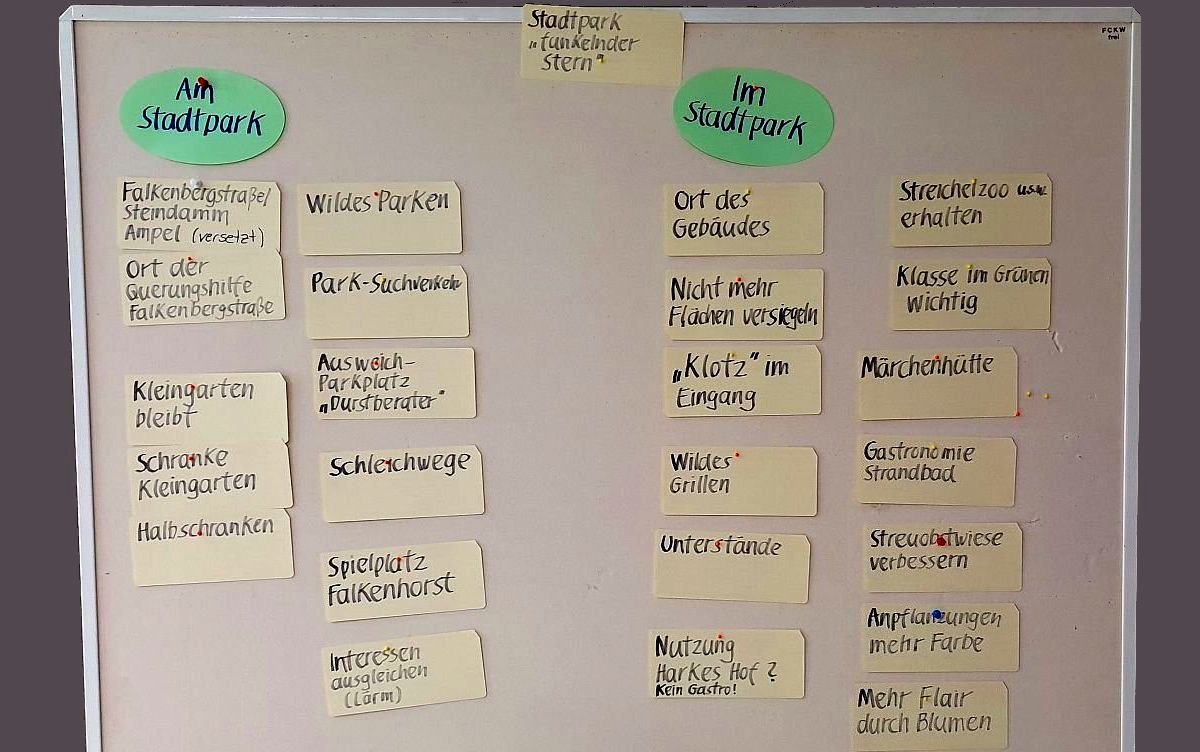 Stadtpark
„funkelnder
Stern“
FCKW
frei
Am
Stadtpark
Falkenbergstraße/
Steindamm
Ampel (versetzt)
Ort der
Querungshilfe
Falkenbergstraße
Kleingarten
bleibt
Schranke
Kleingarten
Halbschranken
Wildes Parken
Park-Suchverkehr
Ausweich-
Parkplatz
„Durstberater“
Schleichwege
Spielplatz
Falkenhorst
Interessen
ausgleichen
(Lärm)
Im
Stadtpark
Ort des
Gebäudes
Nicht mehr
Flächen versiegeln
„Klotz“ im
Eingang
Wildes
Grillen
Unterstände
Nutzung
Harkes Hof ?
Kein Gastro!
Streichelzoo u.s.w.
erhalten
Klasse im Grünen
Wichtig
Märchenhütte
Gastronomie
Strandbad
Streuobstwiese
verbessern
Anpflanzungen
mehr Farbe
Mehr Flair
durch Blumen